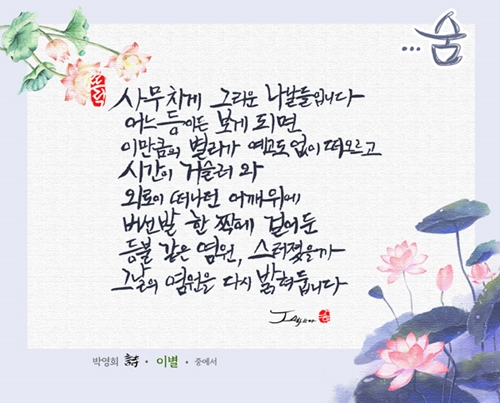 ...숨
사무치게 그리운 나날들입니다
어느 등이든 보게 되면
이만큼의 별리가 예고도 없이 떠오르고
시간이 거슬러 와
외로이 떠나던 어깨위에
버선발 한 쪽에 걸어둔
등불 같은 염원, 스러졌을까
그날의 염원을 다시 밝혀둡니다
박영희 詩 • 이별 • 중에서